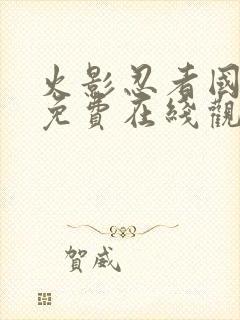 火影忍者國
免費在綫觀
賀威